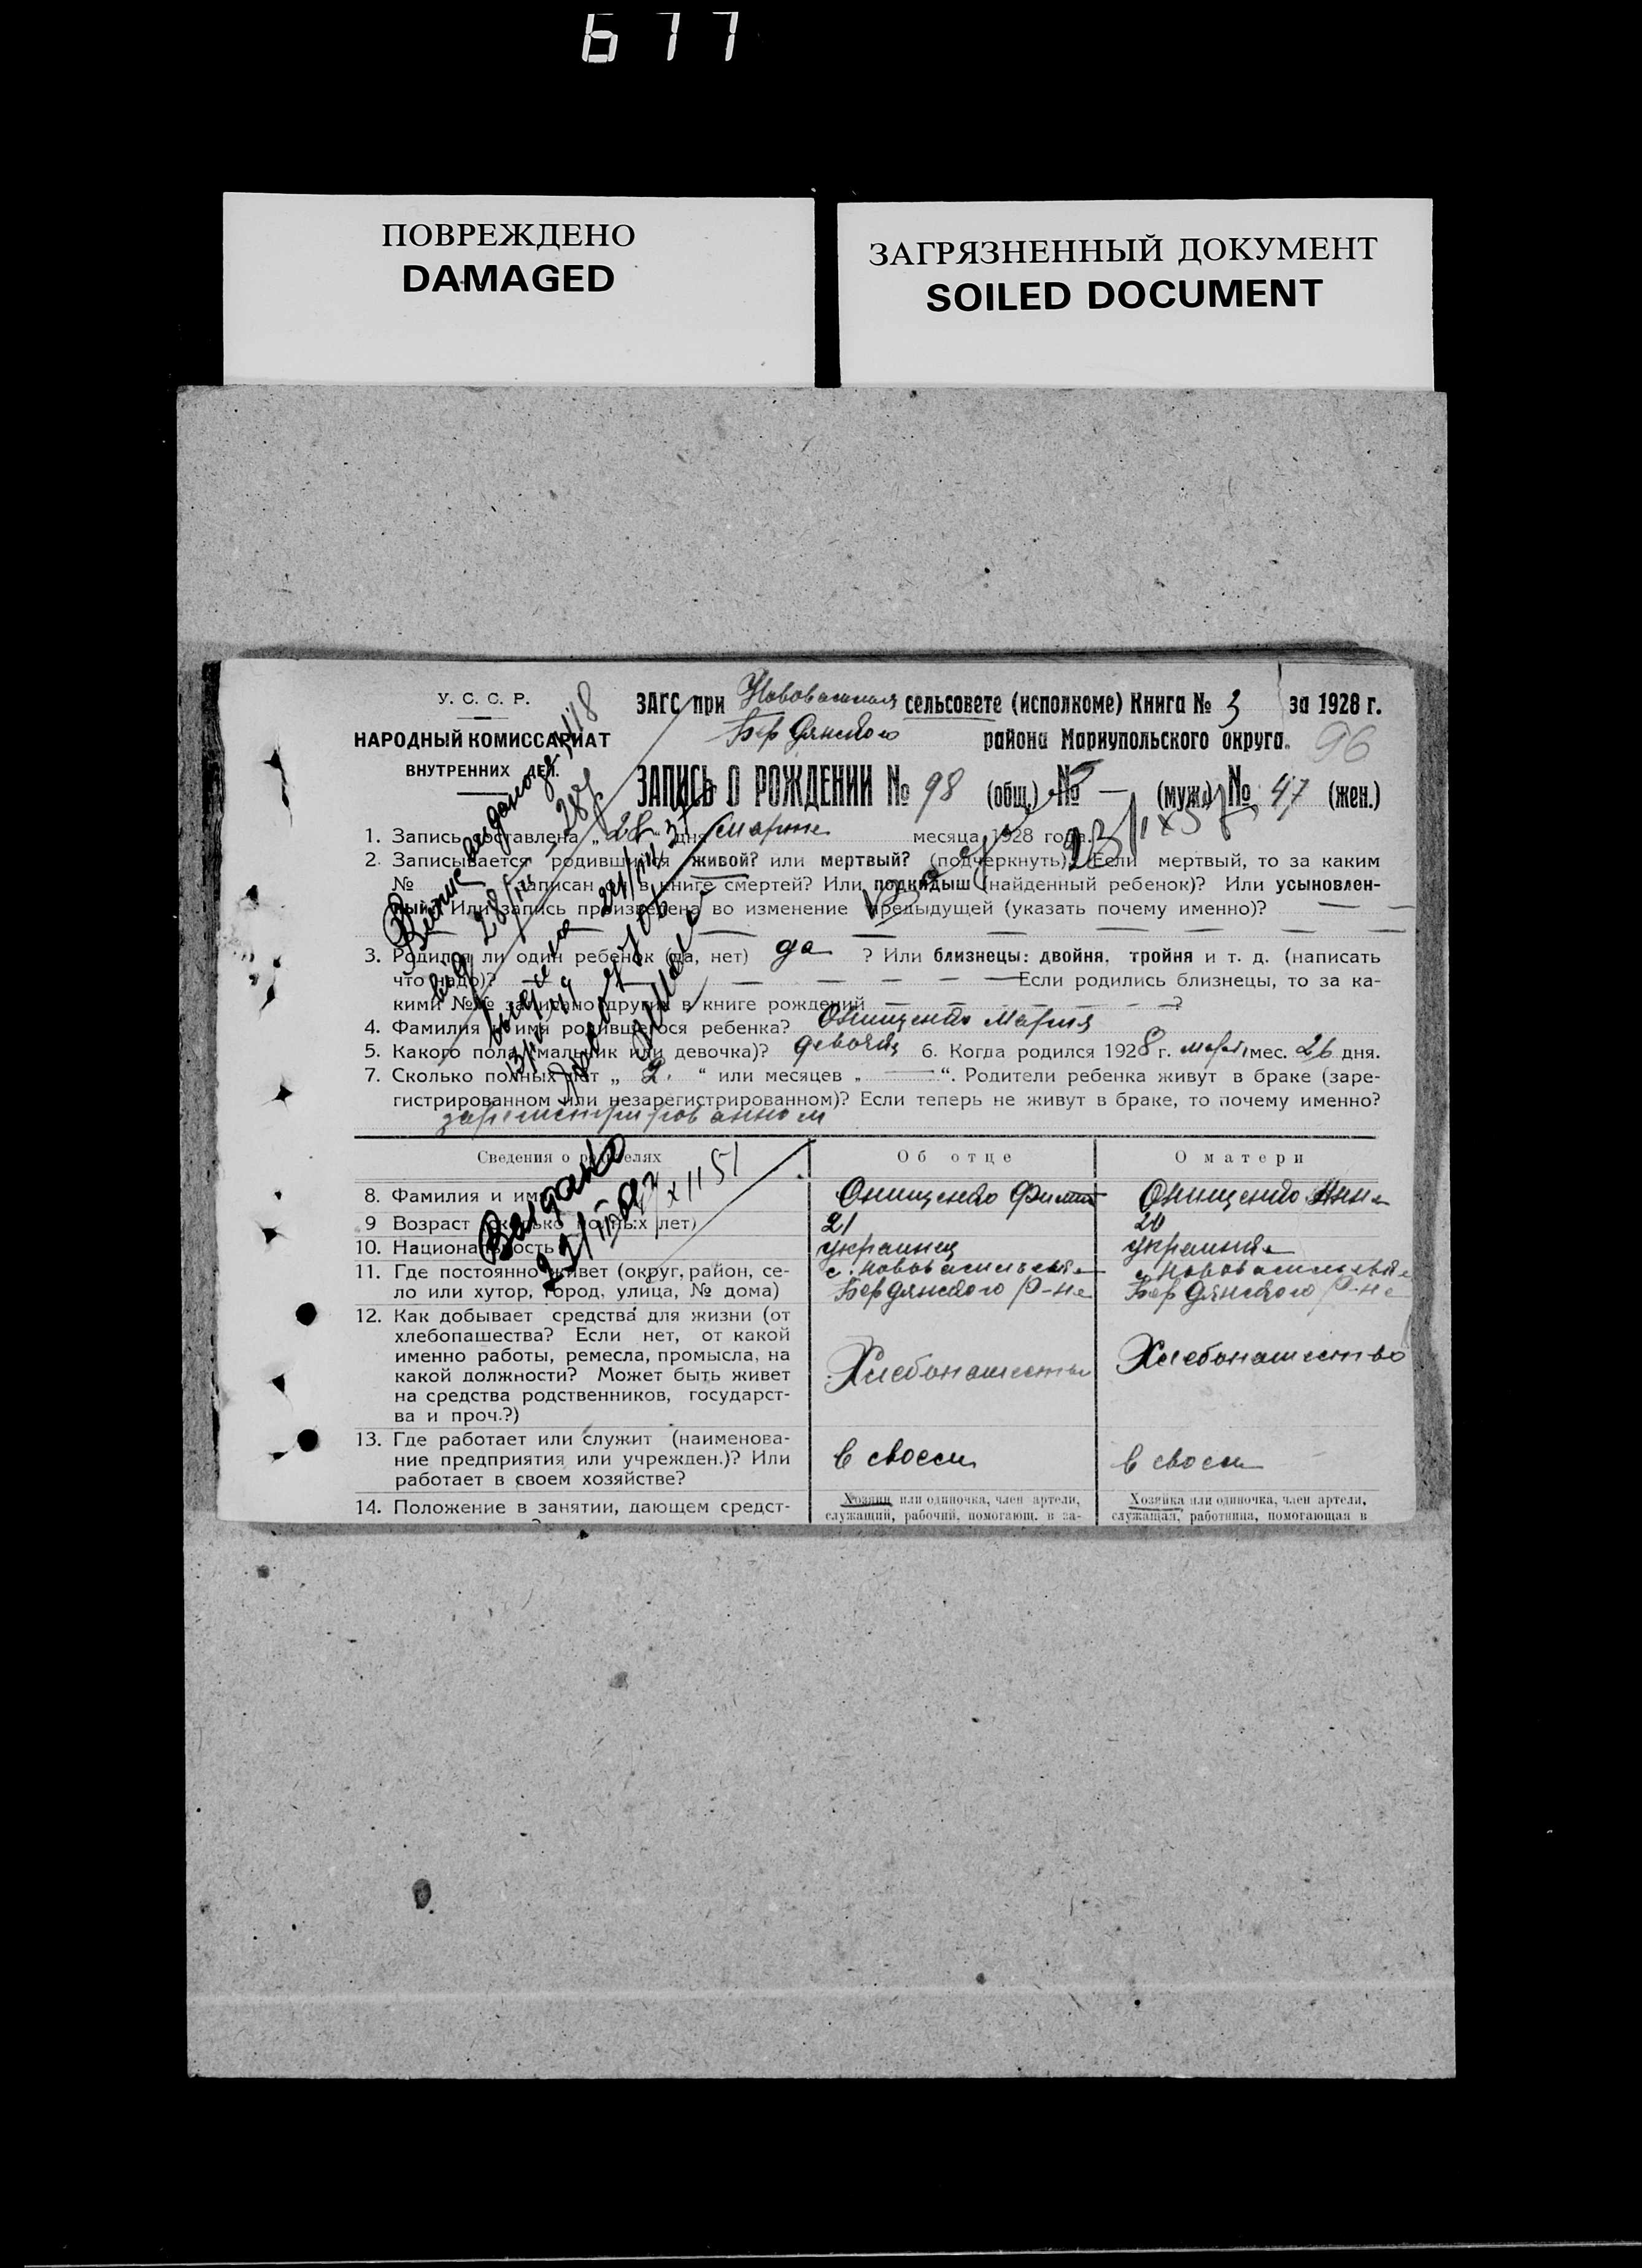 677
ПОВРЕЖДЕНО
DAMAGED
ЗАГРЯЗНЕННЫЙ ДОКУМЕНТ
SOILED DOCUMENT
У. С. С. Р.
НАРОДНЫЙ КОМИССАРИАТ
ВНУТРЕННИХ ДЕЛ.
ЗАГС при сельсовете (исполкоме) Книга № 3 за 1928 г.
Бердянского района Мариупольского округа.
96
ЗАПИСЬ О РОЖДЕНИИ № 98 (общ.) № — (муж.) № 47 (жен.)
1. Запись составлена „28“ дня марта месяца 1928 года.
2. Записывается родившийся живой? или мертвый? (подчеркнуть). Если мертвый, то за каким
№ записан он в книге смертей? Или подкидыш (найденный ребенок)? Или усыновлен-
ный? Или запись произведена во изменение предыдущей (указать почему именно)?
3. Родился ли один ребенок (да, нет) да ? Или близнецы: двойня, тройня и т. д. (написать
что надо)? Если родились близнецы, то за ка-
кими №№ записано других в книге рождений ?
4. Фамилия и имя родившегося ребенка? Онищенко Мария
5. Какого пола (мальчик или девочка)? девочка 6. Когда родился 1928 г. март мес. 26 дня.
7. Сколько полных лет „ 2. “ или месяцев „ — “. Родители ребенка живут в браке (заре-
гистрированном или незарегистрированном)? Если теперь не живут в браке, то почему именно?
зарегистрированном
Выдано
Сведения о родителях
Об отце
О матери
8. Фамилия и имя
Онищенко
Онищенко Анна
9 Возраст (сколько полных лет)
21
20
10. Национальность
украинец
украинка
11. Где постоянно живет (округ, район, се-
ло или хутор, город, улица, № дома)
с. Нововасильевка
Бердянского р-на
с. Нововасильевка
Бердянского р-на
12. Как добывает средства для жизни (от
хлебопашества? Если нет, от какой
именно работы, ремесла, промысла, на
какой должности? Может быть живет
на средства родственников, государст-
ва и проч.?)
Хлебопашество
Хлебопашество
13. Где работает или служит (наименова-
ние предприятия или учрежден.)? Или
работает в своем хозяйстве?
в своем
в своем
14. Положение в занятии, дающем средст-
Хозяин или одиночка, член артели,
служащий, рабочий, помогающ. в за-
Хозяйка или одиночка, член артели,
служащая, работница, помогающая в